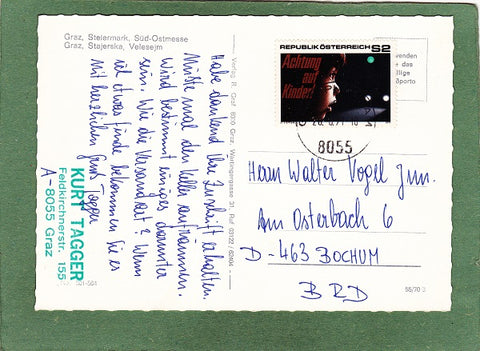 Graz, Steiermark, Süd-Ostmesse
Graz, Stajerska, Velesejm
Habe dankend Ihre Zuschrift erhalten.
Müßte mal den Keller aufräumen.
Wird bestimmt einiges darunter
sein. Wie die Versandart? Wenn
ich etwas finde bekommen Sie es
Mit herzlichem Gruß Tagger
KURT TAGGER
Feldkirchnerstr. 155
A-8055 Graz
Verlag R. Graf 8010 Graz,
REPUBLIK ÖSTERREICH S2
Achtung
auf
Kinder!
8055
wenden
e das
llige
Sporto
Herrn Walter Vogel jun.
Am Osterbach 6
D-463 BOCHUM
BRD